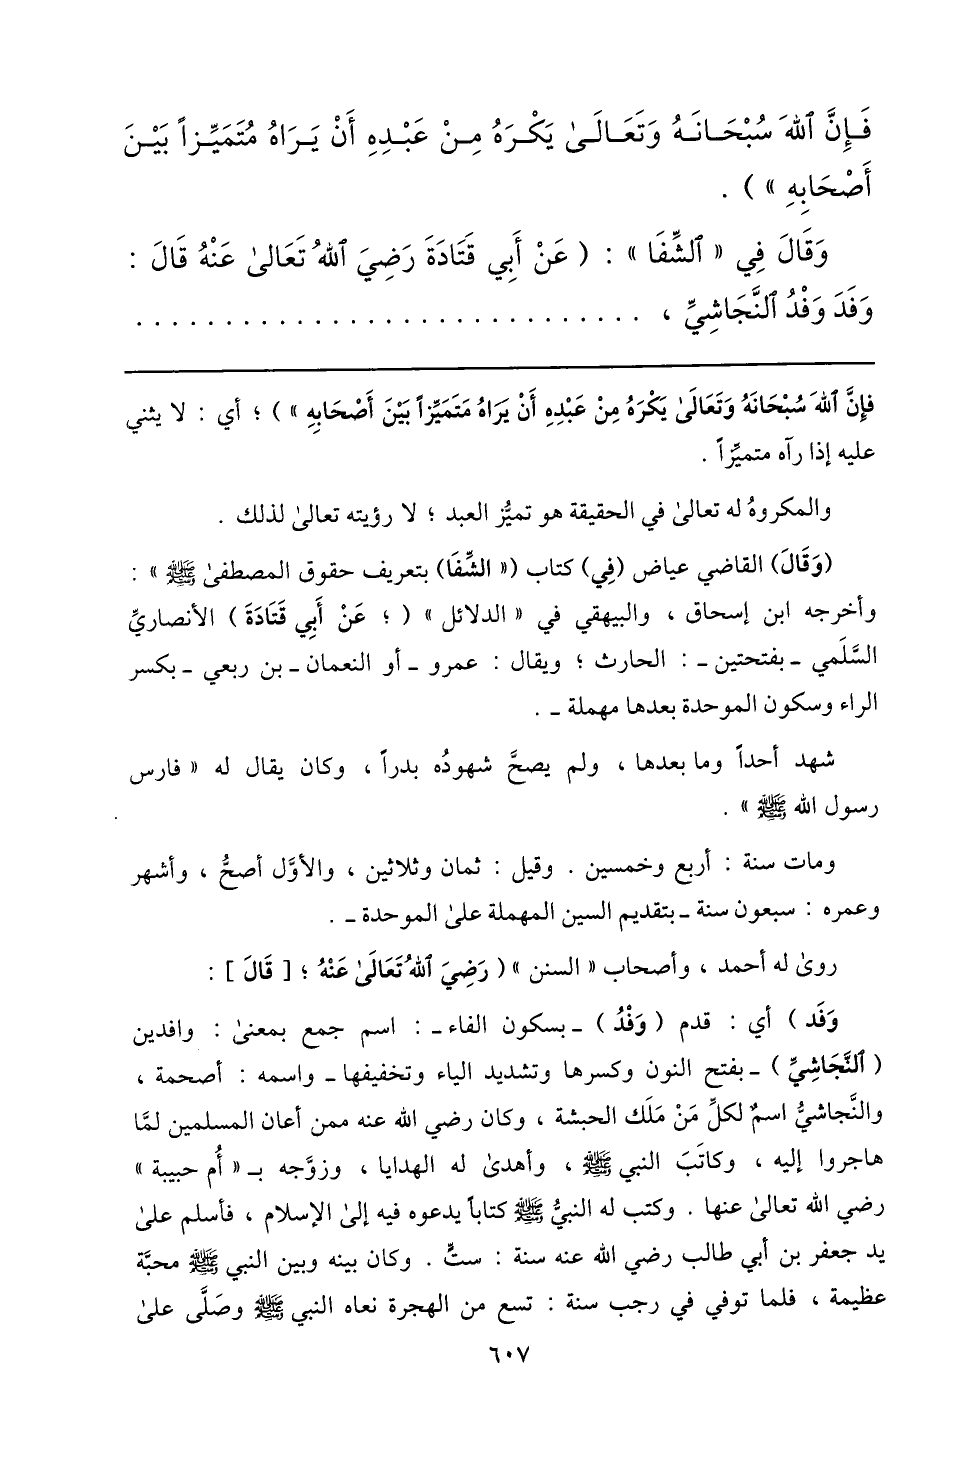 فَإِنَّ ٱللهَ سُبْحَانَهُ وَتَعَالَىٰ يَكْرَهُ مِنْ عَبْدِهِ أَنْ يَرَاهُ مُتَمَيِّزاً بَيْنَ
أَصْحَابِهِ » ) .
وَقَالَ فِي « ٱلشِّفَا » : ( عَنْ أَبِي قَتَادَةَ رَضِيَ ٱللهُ تَعَالىٰ عَنْهُ قَالَ :
وَفَدَ وَفْدُ ٱلنَّجَاشِيِّ ، . . . . . . . . . . . . . . . . . . . . . . . . . . . .
فإِنَّ ٱللهَ سُبْحَانَهُ وَتَعَالَىٰ يَكْرَهُ مِنْ عَبْدِهِ أَنْ يَرَاهُ مَتَمَيِّزاً بَيْنَ أَصْحَابِهِ » ) ؛ أي : لا يثني
عليه إذا رآه متميِّزاً .
والمكروهُ له تعالىٰ في الحقيقة هو تميُّز العبد ؛ لا رؤيته تعالىٰ لذلك .
(وَقَالَ) القاضي عياض (فِي) كتاب (« الشِّفَا) بتعريف حقوق المصطفىٰ ﷺ » :
وأخرجه ابن إسحاق ، والبيهقي في « الدلائل » ( ؛ عَنْ أَبِي قَتَادَةَ ) الأنصاريِّ
السَّلَمي ـ بفتحتين ـ : الحارث ؛ ويقال : عمرو ـ أو النعمان ـ بن ربعي ـ بكسر
الراء وسكون الموحدة بعدها مهملة ـ .
شهد أحداً وما بعدها ، ولم يصحَّ شهودُه بدراً ، وكان يقال له « فارس
رسول الله ﷺ » .
ومات سنة : أربع وخمسين . وقيل : ثمان وثلاثين ، والأوَّل أصحُّ ، وأشهر
وعمره : سبعون سنة ـ بتقديم السين المهملة علىٰ الموحدة ـ .
روىٰ له أحمد ، وأصحاب « السنن » ( رَضِيَ ٱللهُ تَعَالَىٰ عَنْهُ ؛ [ قَالَ ] :
وَفَد ) أي : قدم ( وَفْدُ ) ـ بسكون الفاء ـ : اسم جمع بمعنىٰ : وافدين
( ٱلنَّجَاشِيِّ ) ـ بفتح النون وكسرها وتشديد الياء وتخفيفها ـ واسمه : أصحمة ،
والنَّجاشيُّ اسمٌ لكلِّ مَنْ مَلَك الحبشة ، وكان رضي الله عنه ممن أعان المسلمين لمَّا
هاجروا إليه ، وكاتَبَ النبي ﷺ ، وأهدىٰ له الهدايا ، وزوَّجه بـ « أُم حبيبة »
رضي الله تعالىٰ عنها . وكتب له النبيُّ ﷺ كتاباً يدعوه فيه إلىٰ الإسلام ، فأسلم علىٰ
يد جعفر بن أبي طالب رضي الله عنه سنة : ستٍّ . وكان بينه وبين النبي ﷺ محبَّة
عظيمة ، فلما توفي في رجب سنة : تسع من الهجرة نعاه النبي ﷺ وصَلَّى علىٰ
٦٠٧